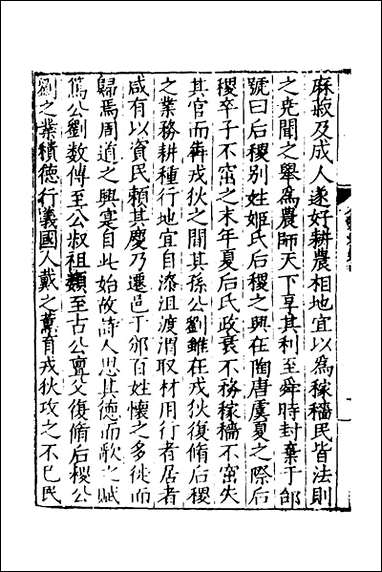 麻菽及成人遂好耕農相地宜以為稼穡民皆法則
之堯聞之舉為農師天下享其利至舜時封棄于邰
號曰后稷別姓姬氏后稷之興在陶唐虞夏之際后
稷卒子不窋之末年夏后氏政衰不務稼穡不窋失
其官而犇戎狄之間其孫公劉雖在戎狄復脩后稷
之業務耕種行地宜自漆沮渡渭取材用行者居者
咸有以資民賴其慶乃遷邑于邠百姓懷之多徙而
歸焉周道之興寔自此始故詩人思其德而歌之賦
篤公劉数傳至公叔祖類至古公亶父復脩后稷公
劉之業積德行義國人戴之薰育戎狄攻之不已民